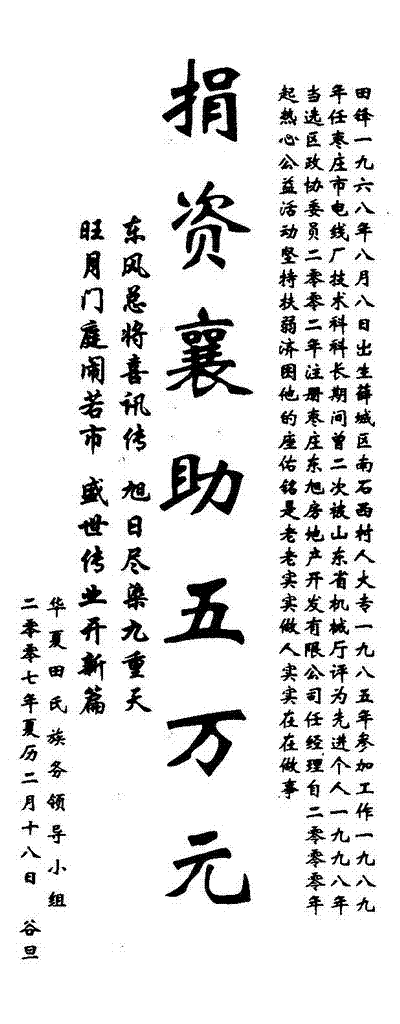 田锋一九六八年八月八日出生薛城区南石西村人大专一九八五年参加工作一九八九
年任枣庄市电线厂技术科科长期间曾二次被山东省机械厅评为先进个人一九九八年
当选区政协委员二零零二年注册枣庄东旭房地产开发有限公司任经理自二零零零年
起热心公益活动坚持扶弱济困他的座佑铭是老老实实做人实实在在做事
捐资襄助五万元
东风总将喜讯传 旭日尽染九重天
旺月门庭闹若市 盛世传业开新篇
华夏田氏族务领导小组
二零零七年夏历二月十八日 谷旦